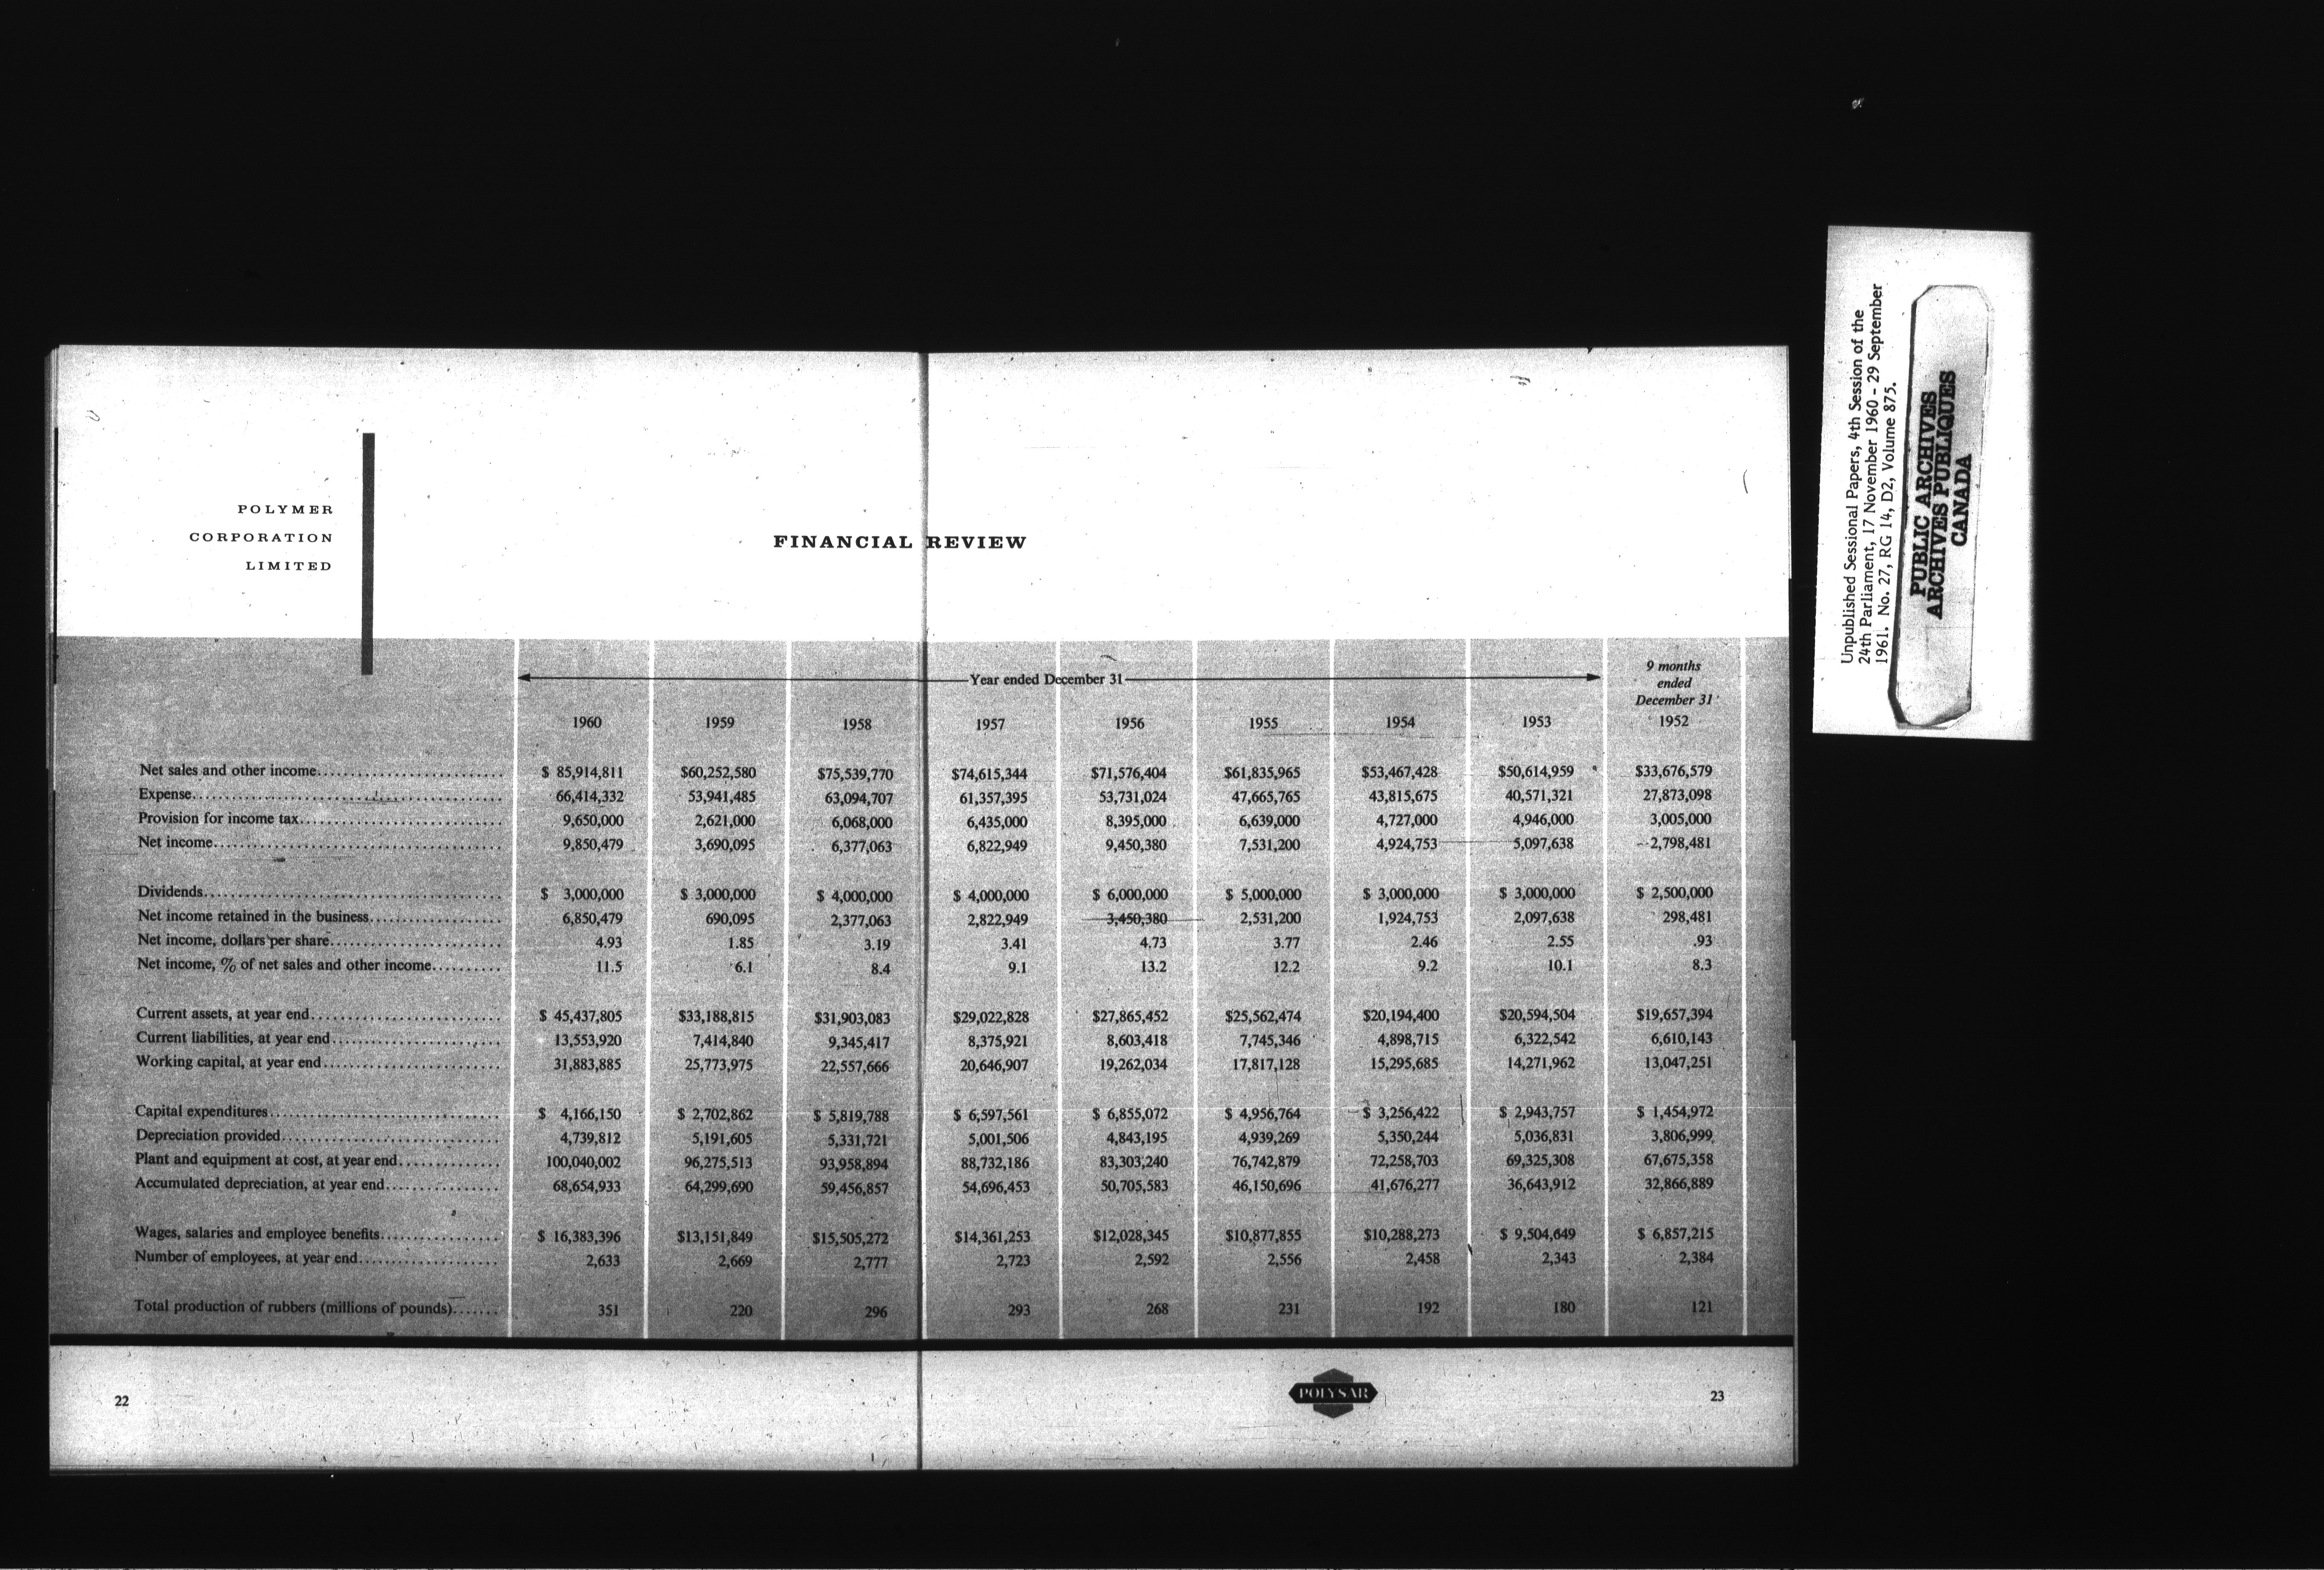 POLYMER
CORPORATION
LIMITED
FINANCIAL REVIEW
Year ended December 31
9 months
ended
December 31
1960 1959 1958 1957 1956 1955 1954 1953 1952
Net sales and other income.......................... $ 85,914,811 $60,252,580 $75,539,770 $74,615,344 $71,576,404 $61,835,965 $53,467,428 $50,614,959 $33,676,579
Expense.......................... 66,414,332 53,941,485 63,094,707 61,357,395 53,731,024 47,665,765 43,815,675 40,571,321 27,873,098
Provision for income tax.......................... 9,650,000 2,621,000 6,068,000 6,435,000 8,395,000 6,639,000 4,727,000 4,946,000 3,005,000
Net income.......................... 9,850,479 3,690,095 6,377,063 6,822,949 9,450,380 7,531,200 4,924,753 5,097,638 2,798,481
Dividends.......................... $ 3,000,000 $ 3,000,000 $ 4,000,000 $ 4,000,000 $ 6,000,000 $ 5,000,000 $ 3,000,000 $ 3,000,000 $ 2,500,000
Net income retained in the business.................... 6,850,479 690,095 2,377,063 2,822,949 3,450,380 2,531,200 1,924,753 2,097,638 298,481
Net income, dollars per share.......................... 4.93 1.85 3.19 3.41 4.73 3.77 2.46 2.55 .93
Net income, % of net sales and other income.......... 11.5 6.1 8.4 9.1 13.2 12.2 9.2 10.1 8.3
Current assets, at year end.......................... $ 45,437,805 $33,188,815 $31,903,083 $29,022,828 $27,865,452 $25,562,474 $20,194,400 $20,594,504 $19,657,394
Current liabilities, at year end.......................... 13,553,920 7,414,840 9,345,417 8,375,921 8,603,418 7,745,346 4,898,715 6,322,542 6,610,143
Working capital, at year end.......................... 31,883,885 25,773,975 22,557,666 20,646,907 19,262,034 17,817,128 15,295,685 14,271,962 13,047,251
Capital expenditures.......................... $ 4,166,150 $ 2,702,862 $ 5,819,788 $ 6,597,561 $ 6,855,072 $ 4,956,764 $ 3,256,422 $ 2,943,757 $ 1,454,972
Depreciation provided.......................... 4,739,812 5,191,605 5,331,721 5,001,506 4,843,195 4,939,269 5,350,244 5,036,831 3,806,999
Plant and equipment at cost, at year end............... 100,040,002 96,275,513 93,958,894 88,732,186 83,303,240 76,742,879 72,258,703 69,325,308 67,675,358
Accumulated depreciation, at year end................. 68,654,933 64,299,690 59,456,857 54,696,453 50,705,583 46,150,696 41,676,277 36,643,912 32,866,889
Wages, salaries and employee benefits................. $ 16,383,396 $13,151,849 $15,505,272 $14,361,253 $12,028,345 $10,877,855 $10,288,273 $ 9,504,649 $ 6,857,215
Number of employees, at year end..................... 2,633 2,669 2,777 2,723 2,592 2,556 2,458 2,343 2,384
Total production of rubbers (millions of pounds)....... 351 220 296 293 268 231 192 180 121
22
POLYSAR
23
Unpublished Sessional Papers, 4th Session of the
24th Parliament, 17 November 1960 - 29 September
1961. No. 27, RG 14, D2, Volume 875.
PUBLIC ARCHIVES
ARCHIVES PUBLIQUES
CANADA